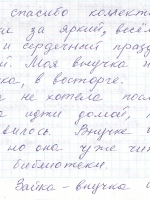 спасибо коллекти
за яркий, весёл
и сердечный празд
й. Моя внучка н
ка, в восторге.
не хотела посл
идти домой,
вилось. Внучке
но она уже чит
библиотеки.
Зайка - внучка и